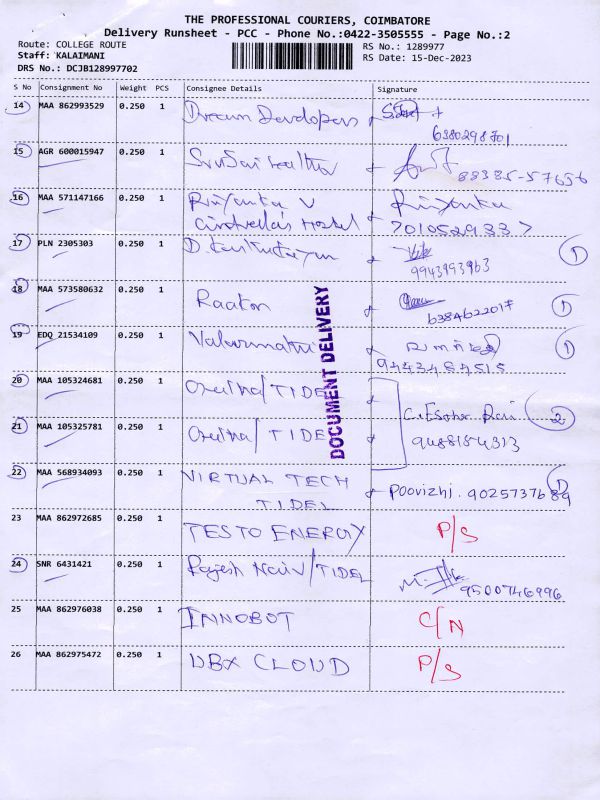 THE PROFESSIONAL COURIERS, COIMBATORE
Delivery Runsheet - PCC - Phone No.:0422-3505555 - Page No.:2
Route: COLLEGE ROUTE
Staff: KALAIMANI
DRS No.: DCJB128997702
RS No.: 1289977
RS Date: 15-Dec-2023
S No Consignment No Weight PCS Consignee Details Signature
14 MAA 862993529 0.250 1 Dream Developers
6380298701
15 AGR 600015947 0.250 1 88385-57656
16 MAA 571147166 0.250 1 Priyanka V Priyanka
Hostel 7010529337
17 PLN 2305303 0.250 1 D. 1
9943993963
18 MAA 573580632 0.250 1 Raakon 1
6384622017
19 EDQ 21534109 0.250 1 Valarmathi 1
9443484515
20 MAA 105324681 0.250 1 /TIDEL
C. Esther Rani 2
21 MAA 105325781 0.250 1 /TIDEL 9488184313
DOCUMENT DELIVERY
22 MAA 568934093 0.250 1 VIRTUAL TECH 1
TIDEL Poovizhi. 9025737689
23 MAA 862972685 0.250 1 TESTO ENERGY P/S
24 SNR 6431421 0.250 1 Rajesh Nair/TIDEL
9500746996
25 MAA 862976038 0.250 1 INNOBOT C/N
26 MAA 862975472 0.250 1 UBX CLOUD P/S